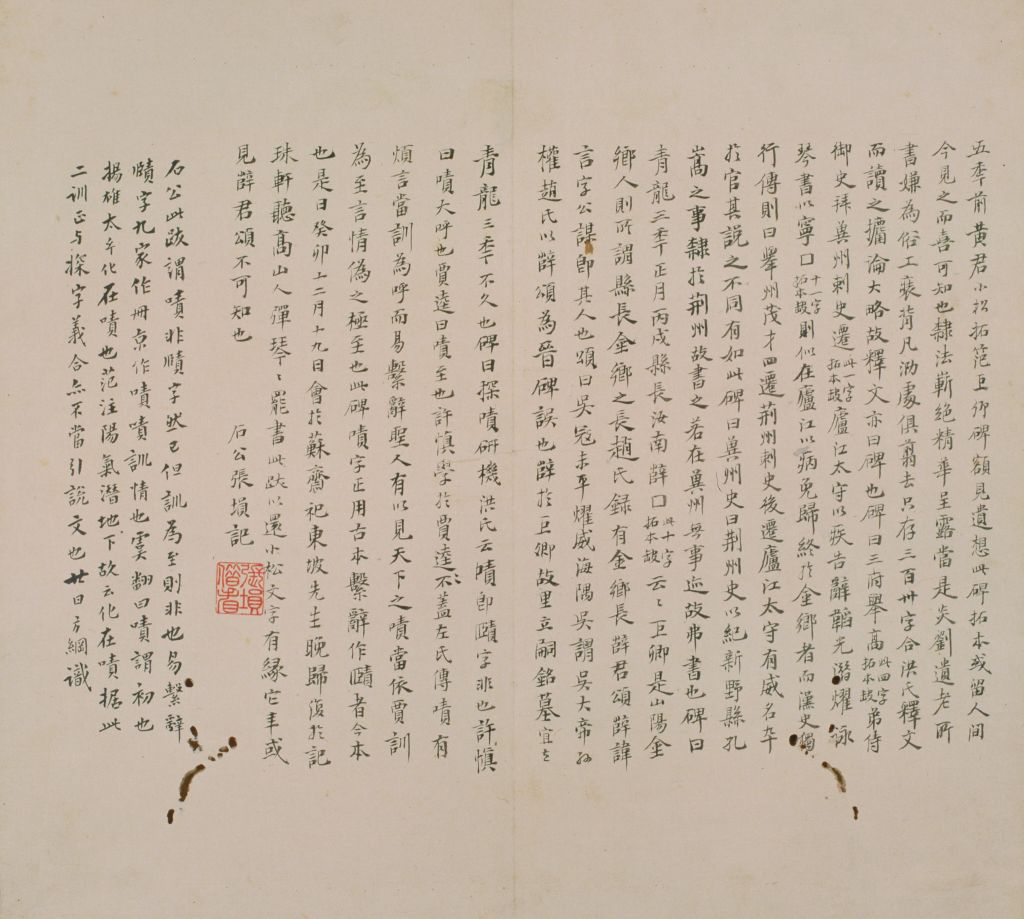 五年前黄君小松拓范巨卿碑額見遺想此碑拓本或留人間
今見之而喜可知也隸法嶄絕精華呈露當是炎劉遺老所
書嫌為俗工裝背凡泐處俱翦去只存三百卅字合洪氏釋文
而讀之攟淪大略故釋文亦曰碑也碑曰三府舉高此四字拓本缺弟侍
御史拜兾州刺史遷此一字拓本缺廬江太守以疾告辭韜光潛燿詠
琴書以寧口十一字拓本缺則似在廬江以病免歸終於金鄉者而漢史獨
行傳則曰舉州茂才四遷荆州刺史後遷廬江太守有威名卒
於官其說之不同有如此碑曰兾州史曰荆州史以紀新野縣孔
嵩之事隸於荆州故書之若在兾州無事迹故弗書也碑曰
青龍三年正月丙戌縣長汝南薛口此十字拓本缺云〻巨卿是山陽金
鄉人則所謂縣長金鄉之長趙氏録有金鄉長薛君頌薛諱
言字公謀即其人也頌曰吳寇未平燿威海隅吳謂吳大帝孫
權趙氏以薛頌為晉碑誤也薛於巨卿故里立嗣銘墓宜在
青龍三年不久也碑曰探嘖研機洪氏云嘖即賾字非也許慎
曰嘖大呼也賈逵曰嘖至也許慎學於賈逵不蓋左氏傳嘖有
煩言當訓為呼而易繫辭聖人有以見天下之嘖當依賈訓
為至言情偽之極至也此碑嘖字正用古本繫辭作賾者今本
也是日癸卯十二月十九日會於蘇齋祀東坡先生晚歸復於記
珠軒聽髙山人彈琴〻罷書此跋以還小松文字有緣它年或
見薛君頌不可知也
石公張塤記
張塤僭書
石公此跋謂嘖非賾字然已但訓為至則非也易繫辭
賾字九家作冊京作嘖嘖訓情也虞翻曰嘖謂初也
揚雄太玄化在嘖也范注陽氣潛地下故云化在嘖据此
二訓正与探字義合亦不當引說文也廿日方綱識